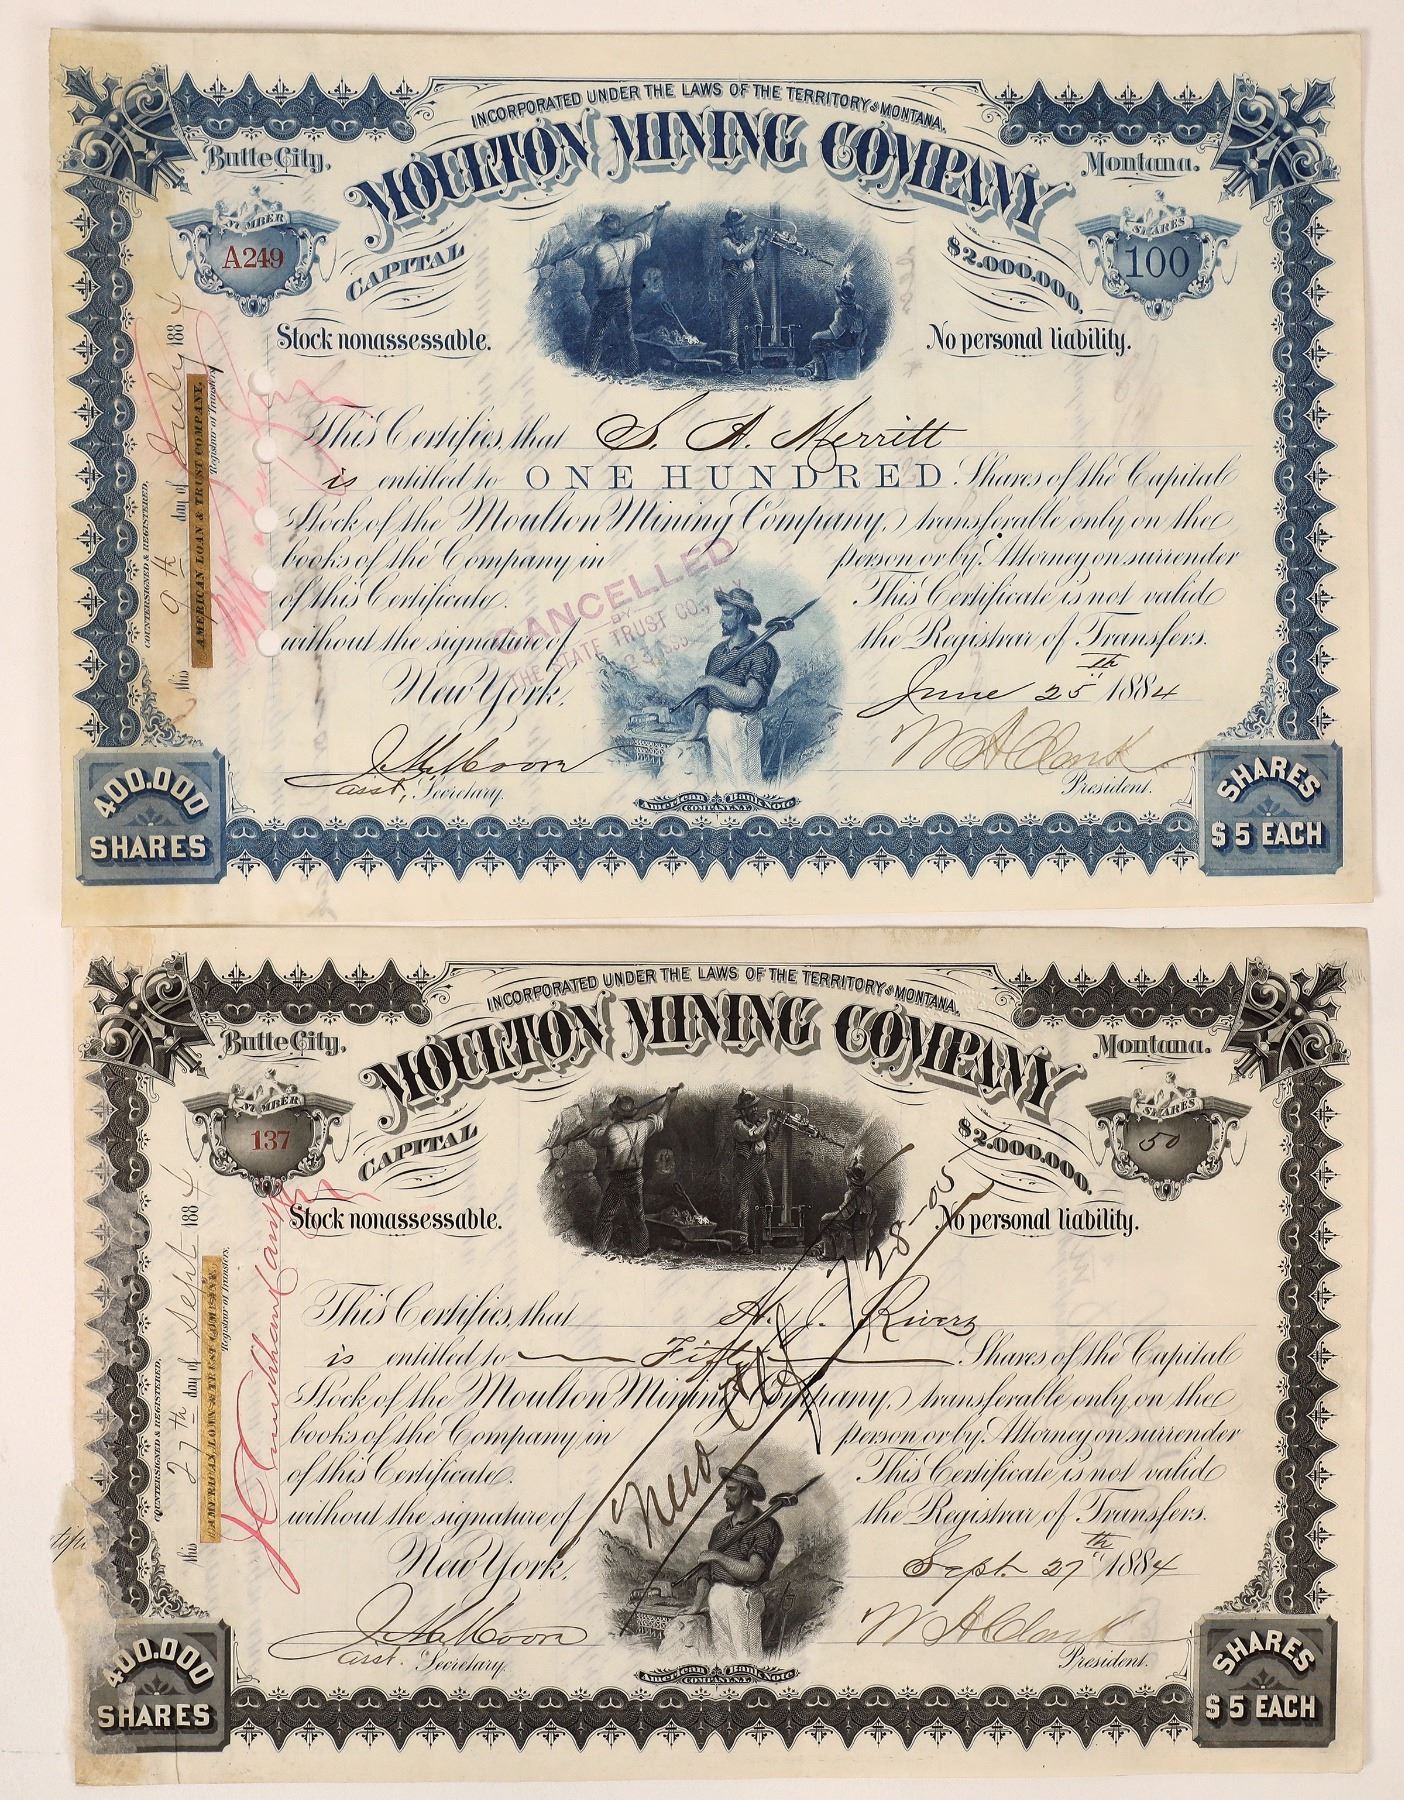 INCORPORATED UNDER THE LAWS OF THE TERRITORY OF MONTANA.
Butte City, Montana.
MOULTON MINING COMPANY
NUMBER
A249
SHARES
100
CAPITAL $2.000.000.
Stock nonassessable. No personal liability.
This Certifies, that S. A. Merritt
is entitled to ONE HUNDRED Shares of the Capital
Stock of the Moulton Mining Company, transferable only on the
books of the Company in person or by Attorney on surrender
of this Certificate. This Certificate is not valid
without the signature of the Registrar of Transfers.
New York, June 25th 1884
J. H. Moore W A Clark
asst. Secretary. President.
American Bank Note
COMPANY, N.Y.
400.000
SHARES
SHARES
$5 EACH
COUNTERSIGNED & REGISTERED,
this 9th day of July 1884
AMERICAN LOAN & TRUST COMPANY,
Registrar of Transfers
CANCELLED
BY
THE STATE TRUST COMPANY
INCORPORATED UNDER THE LAWS OF THE TERRITORY OF MONTANA.
Butte City, Montana.
MOULTON MINING COMPANY
NUMBER
137
SHARES
50
CAPITAL $2.000.000.
Stock nonassessable. No personal liability.
This Certifies, that A. J. Rivers
is entitled to Fifty Shares of the Capital
Stock of the Moulton Mining Company, transferable only on the
books of the Company in person or by Attorney on surrender
of this Certificate. This Certificate is not valid
without the signature of the Registrar of Transfers.
New York, Sept. 27th 1884
J. H. Moore W A Clark
asst. Secretary. President.
American Bank Note
COMPANY, N.Y.
400.000
SHARES
SHARES
$5 EACH
OUNTERSIGNED & REGISTERED,
this 27th day of Sept 1884
AMERICAN LOAN & TRUST COMPANY,
Registrar of Transfers.